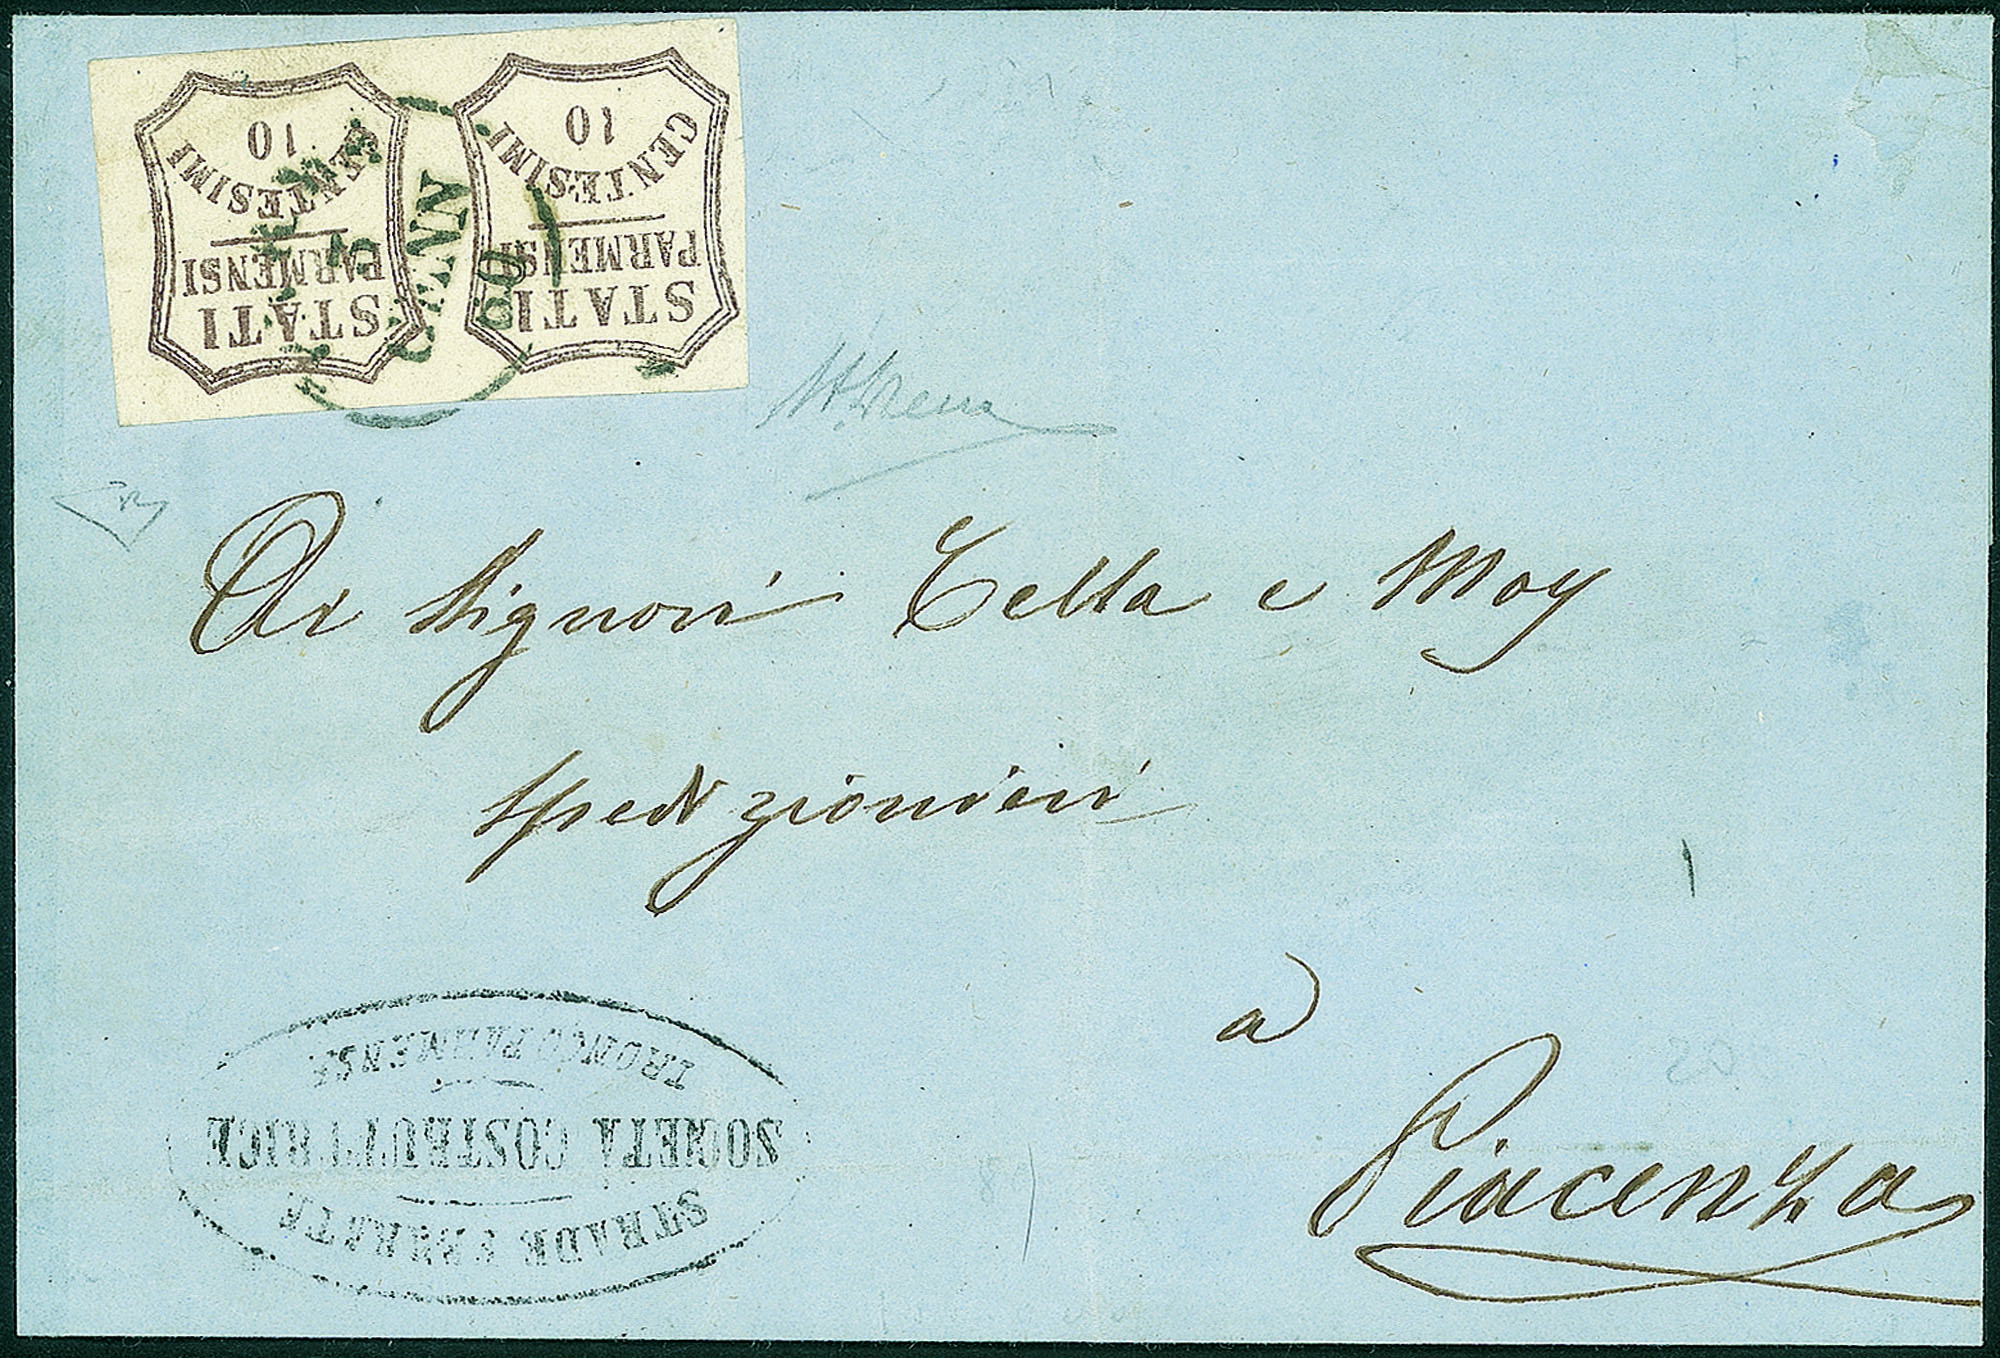 STATI
PARMENSI
CENTESIMI
10
STATI
PARMENSI
CENTESIMI
10
GENN
60
Ai Signori Cella e Moy
Spedizionieri
a
Piacenza
STRADE FERRATE
SOCIETA COSTRUTTRICE
TRONCO PARMENSE